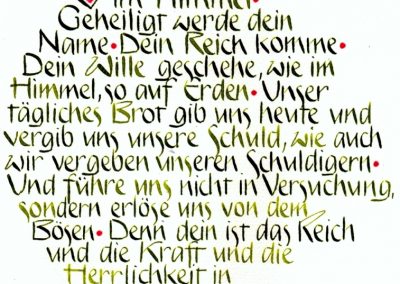 im Himmel•
Geheiligt werde dein
Name•Dein Reich komme•
Dein Wille geschehe, wie im
Himmel, so auf Erden•Unser
tägliches Brot gib uns heute und
vergib uns unsere Schuld, wie auch
wir vergeben unseren Schuldigern•
Und führe uns nicht in Versuchung,
sondern erlöse uns von dem
Bösen•Denn dein ist das Reich
und die Kraft und die
Herrlichkeit in